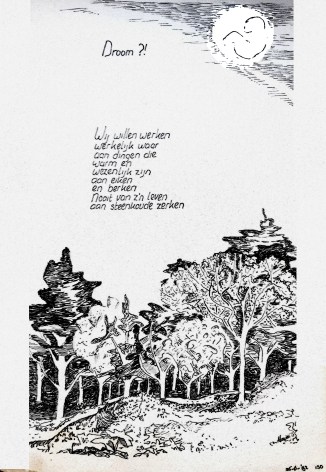 Droom ?!
Wij willen werken
werkelijk waar
aan dingen die
warm en
wezenlijk zijn
aan eiken
en berken
Nooit van z'n leven
aan steenkoude zerken